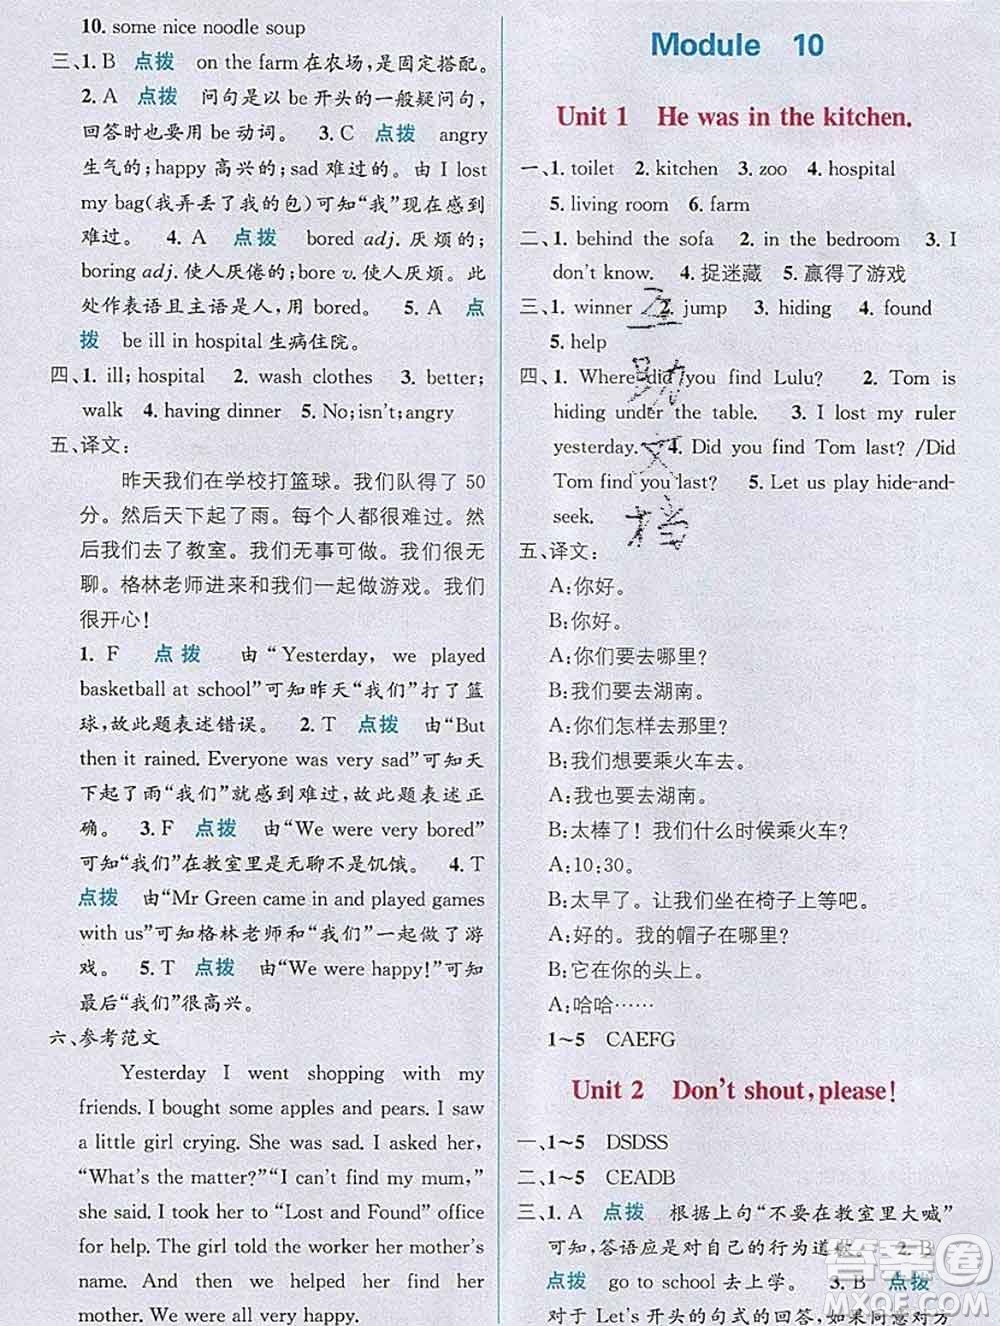 10. some nice noodle soup
三、1. B 点拨 on the farm在农场,是固定搭配。
2. A 点拨 问句是以be开头的一般疑问句,
回答时也要用be动词。 3. C 点拨 angry
生气的;happy高兴的;sad难过的。由I lost
my bag(我弄丢了我的包)可知“我”现在感到
难过。 4. A 点拨 bored adj. 厌烦的;
boring adj. 使人厌倦的;bore v. 使人厌烦。此
处作表语且主语是人,用bored。 5. A 点
拨 be ill in hospital生病住院。
四、1. ill; hospital 2. wash clothes 3. better;
walk 4. having dinner 5. No;isn't;angry
五、译文:
昨天我们在学校打篮球。我们队得了50
分。然后天下起了雨。每个人都很难过。然
后我们去了教室。我们无事可做。我们很无
聊。格林老师进来和我们一起做游戏。我们
很开心!
1. F 点拨 由“Yesterday, we played
basketball at school”可知昨天“我们”打了篮
球,故此题表述错误。 2. T 点拨 由“But
then it rained. Everyone was very sad”可知天
下起了雨“我们”就感到难过,故此题表述正
确。 3. F 点拨 由“We were very bored”
可知“我们”在教室里是无聊不是饥饿。 4. T
点拨 由“Mr Green came in and played games
with us”可知格林老师和“我们”一起做了游
戏。 5. T 点拨 由“We were happy!”可知
最后“我们”很高兴。
六、参考范文
Yesterday I went shopping with my
friends. I bought some apples and pears. I saw
a little girl crying. She was sad. I asked her,
“What's the matter?”“I can't find my mum,”
she said. I took her to “Lost and Found” office
for help. The girl told the worker her mother's
name. And then we helped her find her
mother. We were all very happy.
Module 10
Unit 1 He was in the kitchen.
一、1. toilet 2. kitchen 3. zoo 4. hospital
5. living room 6. farm
二、1. behind the sofa 2. in the bedroom 3. I
don't know. 4. 捉迷藏 5. 赢得了游戏
三、1. winner 2. jump 3. hiding 4. found
5. help
四、1. Where did you find Lulu? 2. Tom is
hiding under the table. 3. I lost my ruler
yesterday. 4. Did you find Tom last? /Did
Tom find you last? 5. Let us play hide-and-
seek.
五、译文:
A:你好。
B:你好。
A:你们要去哪里?
B:我们要去湖南。
A:你们怎样去那里?
B:我们想要乘火车去。
A:我也要去湖南。
B:太棒了!我们什么时候乘火车?
A:10:30。
B:太早了。让我们坐在椅子上等吧。
A:好的。我的帽子在哪里?
B:它在你的头上。
A:哈哈……
1~5 CAEFG
Unit 2 Don't shout, please!
一、1~5 DSDSS
二、1~5 CEADB
三、1. A 点拨 根据上句“不要在教室里大喊”
可知,答语应是对自己的行为道歉。 2. B
点拨 go to school去上学。 3. B 点拨
对于Let's开头的句式的回答,如果同意对方
互助文档
答案圈
MXQE.COM